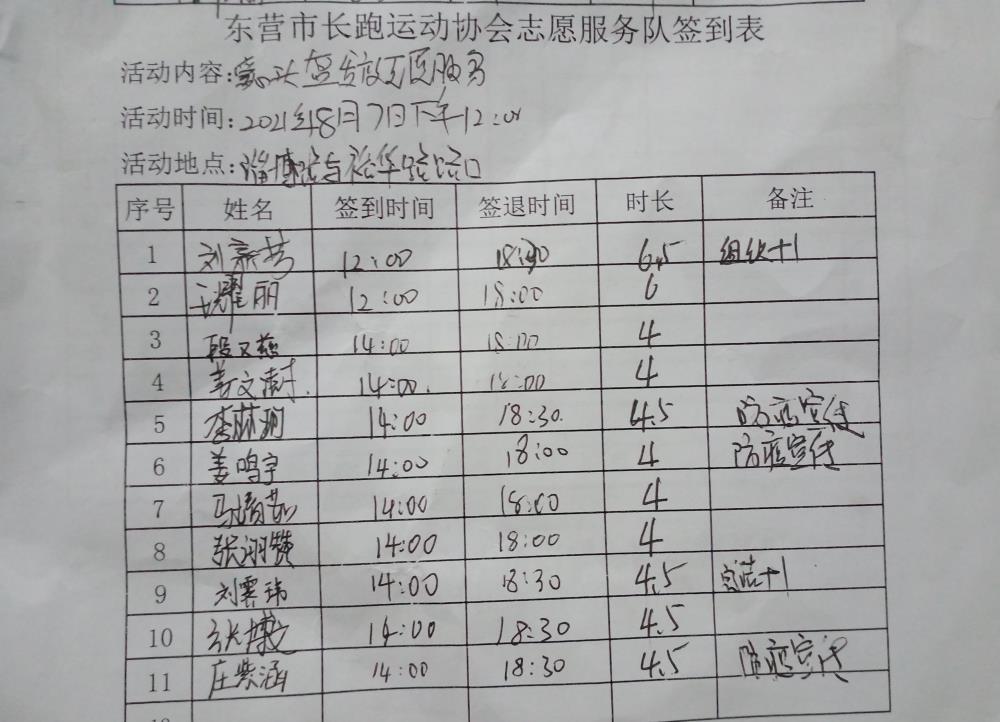 东营市长跑运动协会志愿服务队签到表
活动内容:服务
活动时间:2021年8月7日下午12:00
活动地点:淄博路与裕华路路口
序号 姓名 签到时间 签退时间 时长 备注
1 刘 12:00 18:30 6.5 组织+1
2 耀丽 12:00 18:00 6
3 段又慈 14:00 18:00 4
4 姜文澍 14:00 18:00 4
5 李 14:00 18:30 4.5 防疫宣传
6 姜鸣宇 14:00 18:00 4 防疫宣传
7 马 14:00 18:00 4
8 张翊赞 14:00 18:00 4
9 刘霁玮 14:00 18:30 4.5 +1
10 张 14:00 18:30 4.5
11 庄紫涵 14:00 18:30 4.5 防疫宣传